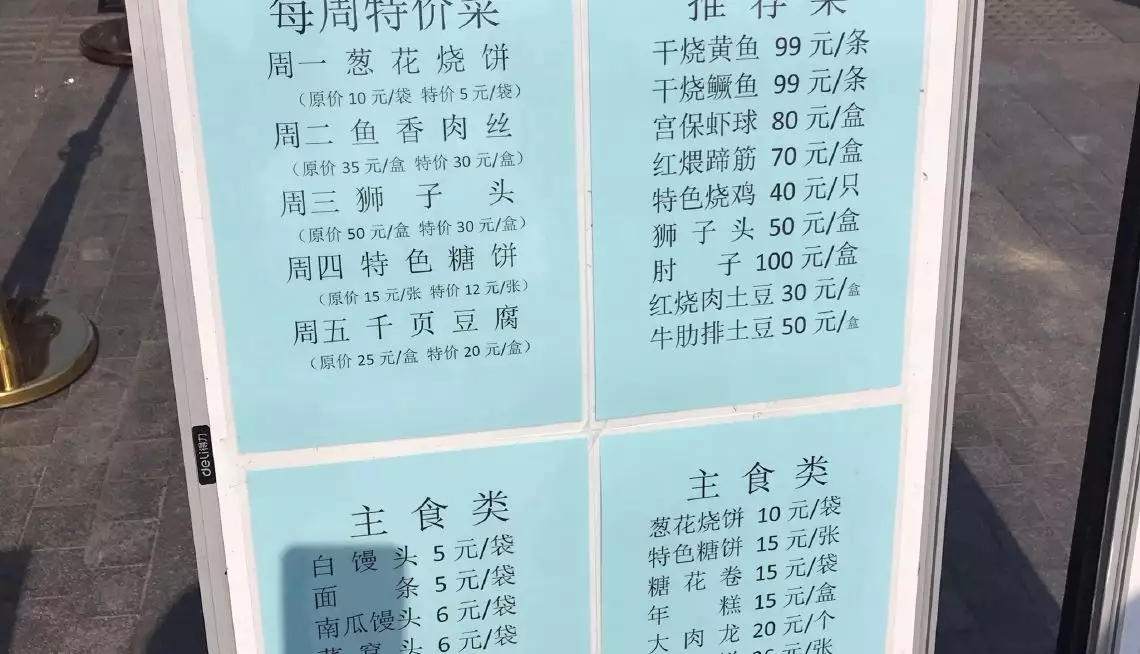 每周特价菜
周一 葱花烧饼
（原价10元/袋 特价5元/袋）
周二 鱼香肉丝
（原价35元/盒 特价30元/盒）
周三 狮子头
（原价50元/盒 特价30元/盒）
周四 特色糖饼
（原价15元/张 特价12元/张）
周五 千页豆腐
（原价25元/盒 特价20元/盒）
推荐菜
干烧黄鱼 99元/条
干烧鳜鱼 99元/条
宫保虾球 80元/盒
红煨蹄筋 70元/盒
特色烧鸡 40元/只
狮子头 50元/盒
肘子 100元/盒
红烧肉土豆 30元/盒
牛肋排土豆 50元/盒
deli得力
主食类
白馒头 5元/袋
面条 5元/袋
南瓜馒头 6元/袋
窝头 6元/袋
主食类
葱花烧饼 10元/袋
特色糖饼 15元/张
糖花卷 15元/袋
年糕 15元/盒
大肉龙 20元/个
元/张